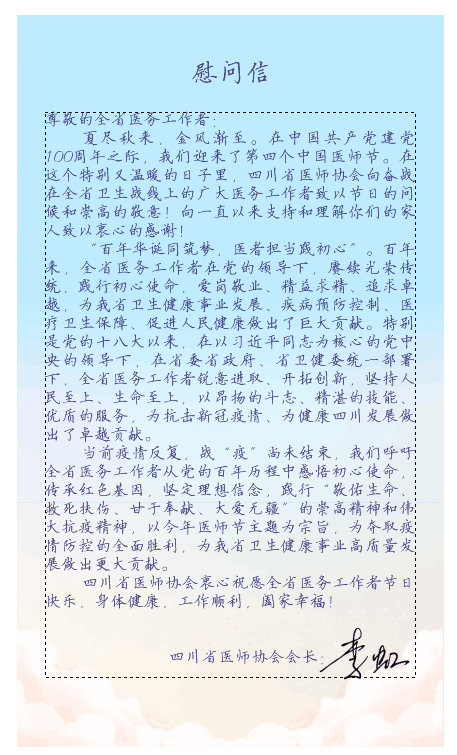 慰问信
尊敬的全省医务工作者：
夏尽秋来，金风渐至。在中国共产党建党
100周年之际，我们迎来了第四个中国医师节。在
这个特别又温暖的日子里，四川省医师协会向奋战
在全省卫生战线上的广大医务工作者致以节日的问
候和崇高的敬意！向一直以来支持和理解你们的家
人致以衷心的感谢！
“百年华诞同筑梦，医者担当践初心”。百年
来，全省医务工作者在党的领导下，赓续光荣传
统，践行初心使命，爱岗敬业、精益求精、追求卓
越，为我省卫生健康事业发展、疾病预防控制、医
疗卫生保障、促进人民健康做出了巨大贡献。特别
是党的十八大以来，在以习近平同志为核心的党中
央的领导下，在省委省政府、省卫健委统一部署
下，全省医务工作者锐意进取、开拓创新，坚持人
民至上、生命至上，以昂扬的斗志、精湛的技能、
优质的服务，为抗击新冠疫情、为健康四川发展做
出了卓越贡献。
当前疫情反复，战“疫”尚未结束，我们呼吁
全省医务工作者从党的百年历程中感悟初心使命，
传承红色基因，坚定理想信念，践行“敬佑生命、
救死扶伤、甘于奉献、大爱无疆”的崇高精神和伟
大抗疫精神，以今年医师节主题为宗旨，为夺取疫
情防控的全面胜利，为我省卫生健康事业高质量发
展做出更大贡献。
四川省医师协会衷心祝愿全省医务工作者节日
快乐，身体健康，工作顺利，阖家幸福！
四川省医师协会会长：李虹